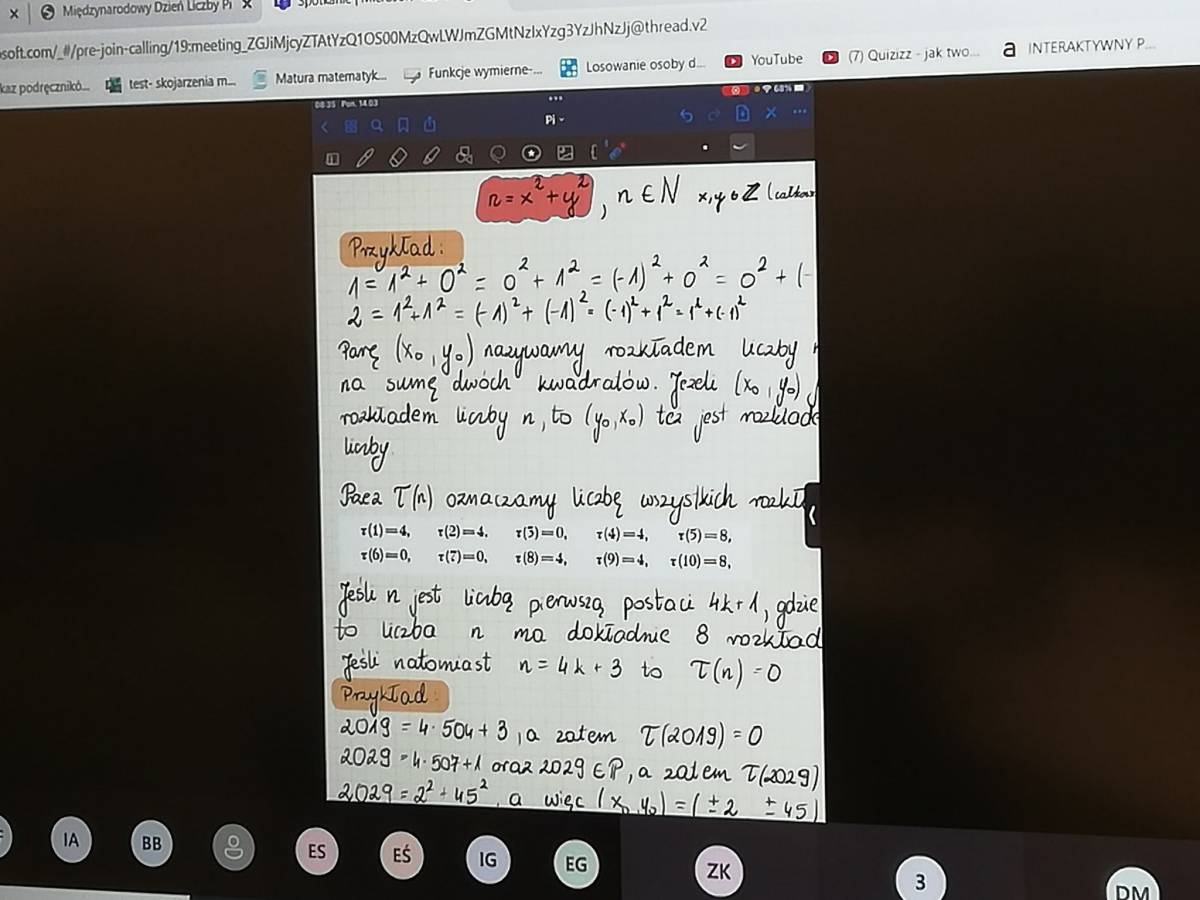 Międzynarodowy Dzień Liczby Pi
osoft.com/_#/pre-join-calling/19:meeting_ZGJiMjcyZTAtYzQ1OS00MzQwLWJmZGMtNzIxYzg3YzJhNzJj@thread.v2
kaz podręcznikó... test- skojarzenia m... Matura matematyk... Funkcje wymierne-... Losowanie osoby d... YouTube (7) Quizizz - jak two... a INTERAKTYWNY P...
08:35 Pon. 14.03 68%
Pi
n = x² + y² , n ∈ N x, y ∈ Z (całkow
Przykład:
1 = 1² + 0² = 0² + 1² = (-1)² + 0² = 0² + (-
2 = 1² + 1² = (-1)² + (-1)² = (-1)² + 1² = 1² + (-1)²
Parę (x₀, y₀) nazywamy rozkładem liczby n
na sumę dwóch kwadratów. Jeżeli (x₀, y₀) j
rozkładem liczby n, to (y₀, x₀) też jest rozkłade
liczby.
Przez τ(n) oznaczamy liczbę wszystkich rozkł
τ(1)=4, τ(2)=4, τ(3)=0, τ(4)=4, τ(5)=8,
τ(6)=0, τ(7)=0, τ(8)=4, τ(9)=4, τ(10)=8,
Jeśli n jest liczbą pierwszą postaci 4k+1, gdzie
to liczba n ma dokładnie 8 rozkład
Jeśli natomiast n = 4k + 3 to τ(n) = 0
Przykład:
2019 = 4·504 + 3, a zatem τ(2019) = 0
2029 = 4·507+1 oraz 2029 ∈ P, a zatem τ(2029)
2029 = 2² + 45², a więc (x₀, y₀) = (±2 ±45)
IA BB ES EŚ IG EG ZK 3 DM